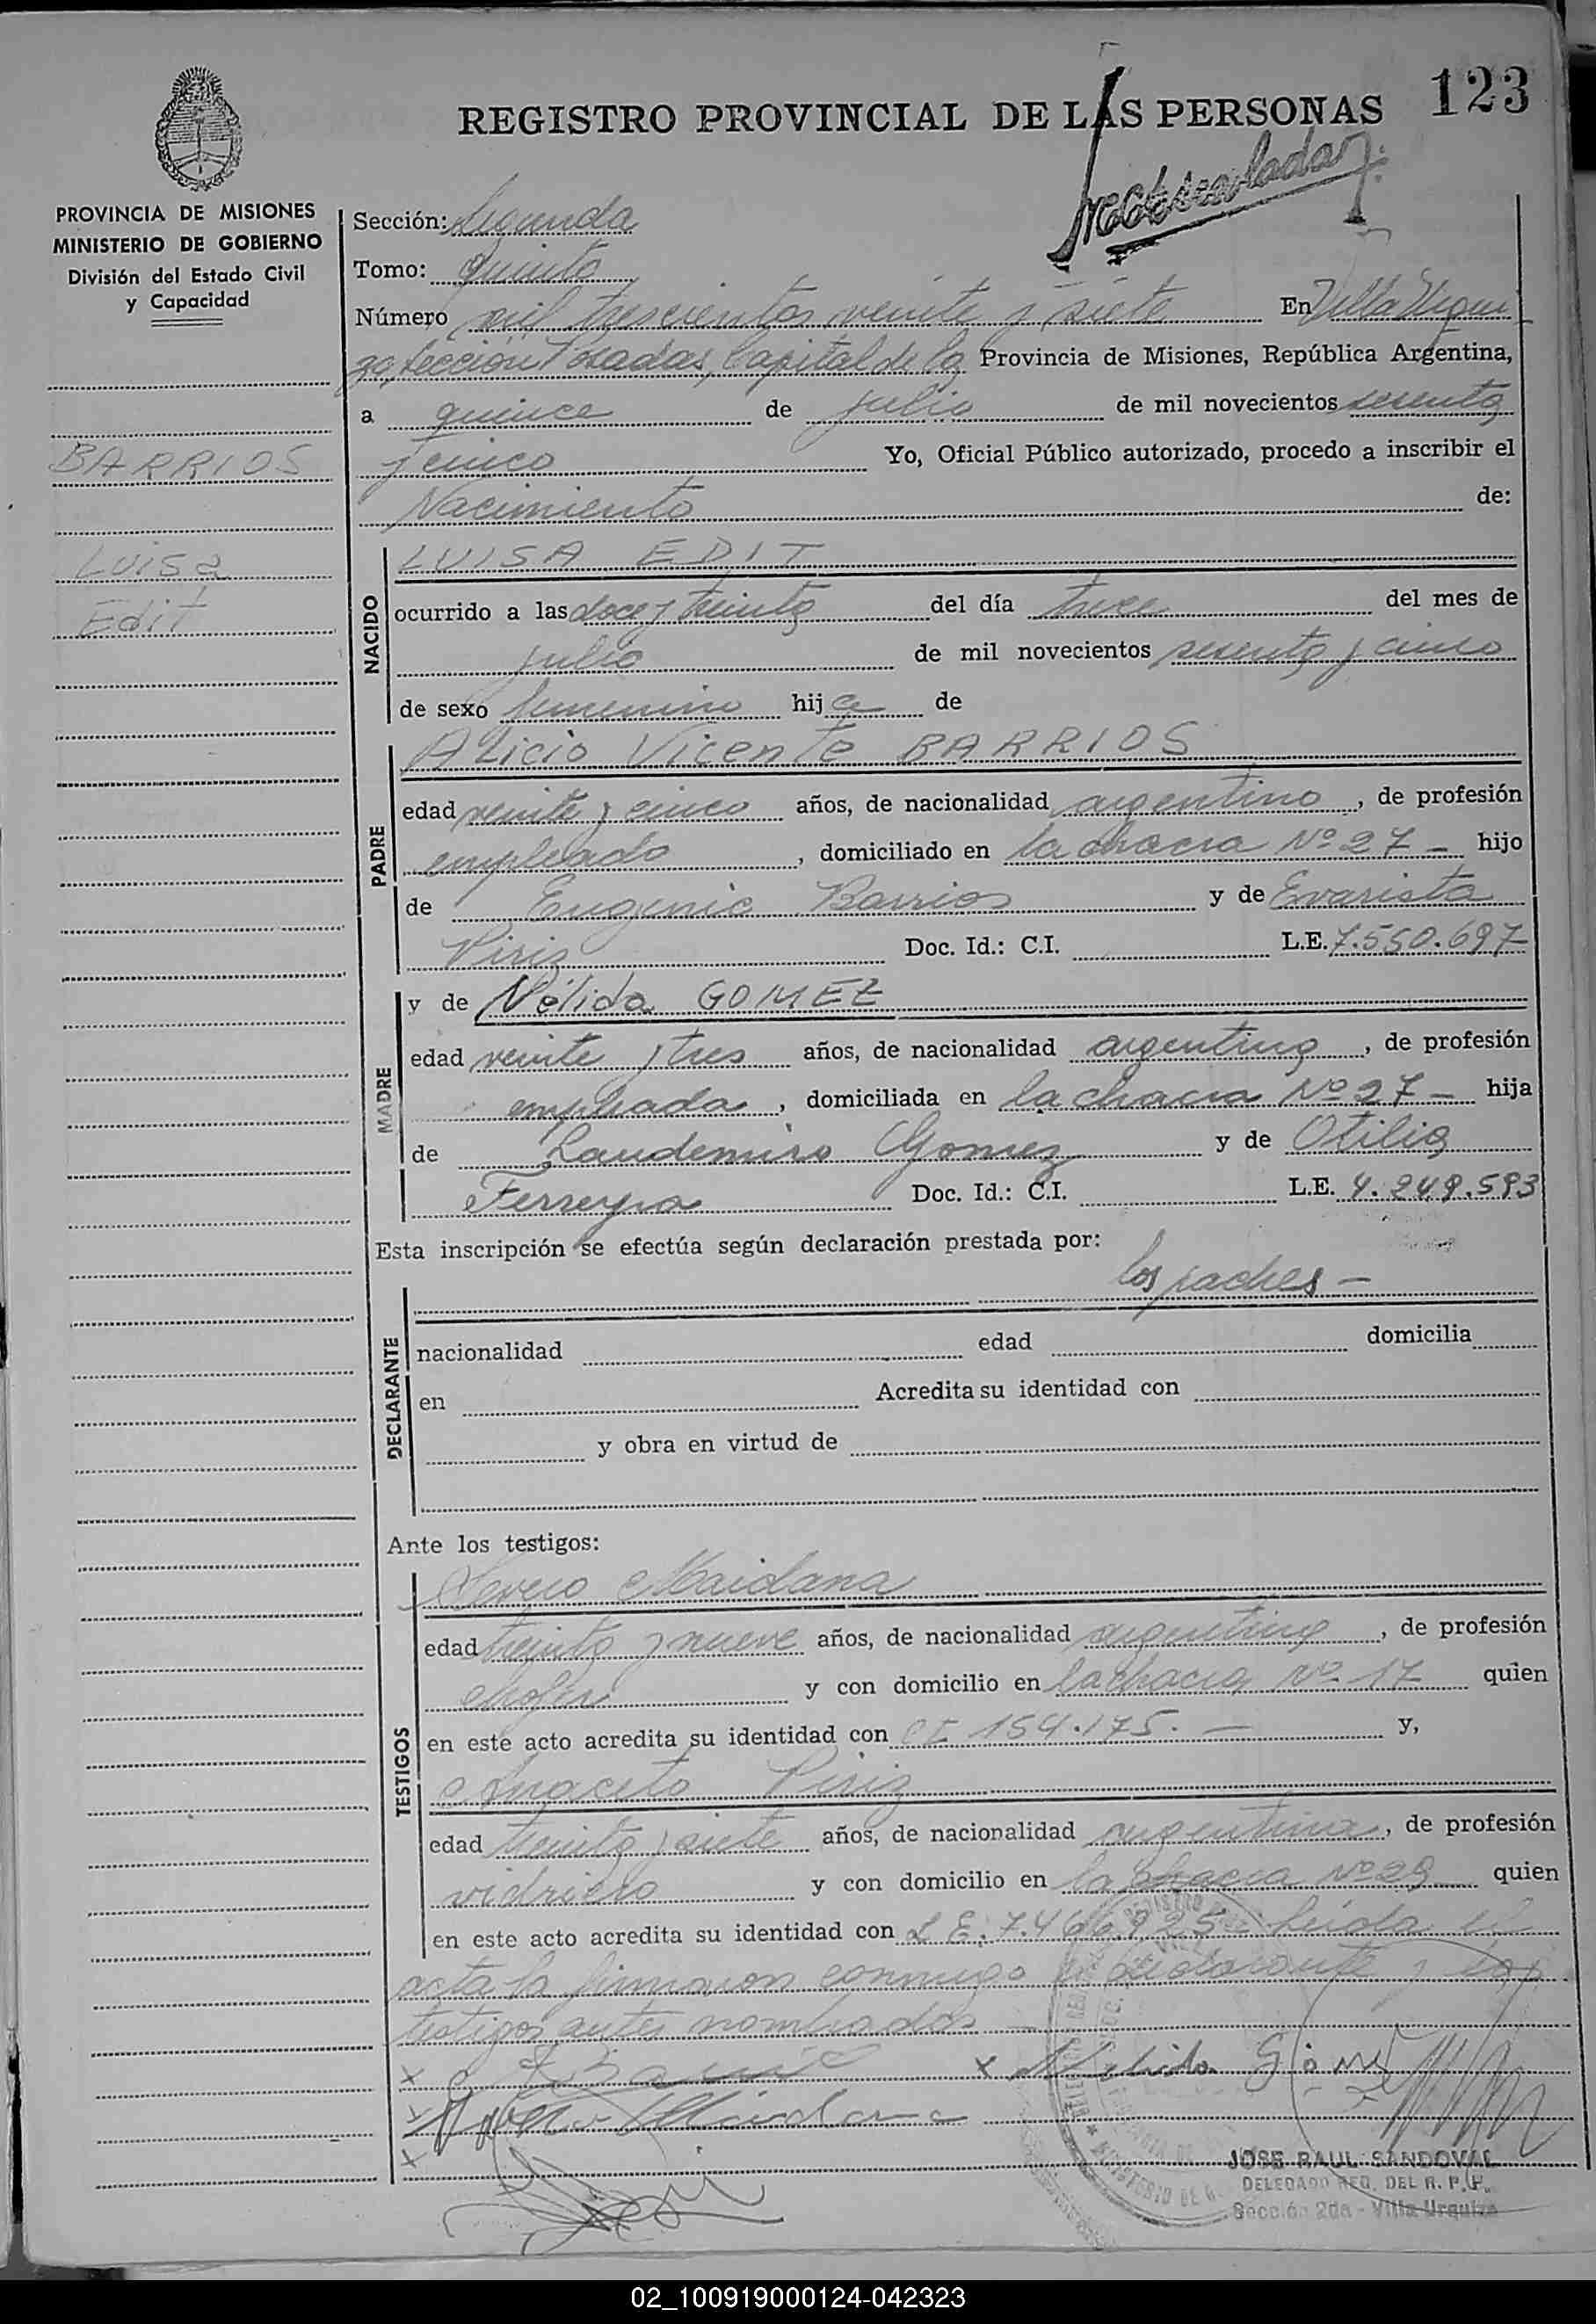 123
REGISTRO PROVINCIAL DE LAS PERSONAS
PROVINCIA DE MISIONES
MINISTERIO DE GOBIERNO
División del Estado Civil
y Capacidad
Sección: Segunda
Tomo: Quinto
Número mil trescientos veinte y siete En Villa Urqui
za, Sección Posadas, Capital de la Provincia de Misiones, República Argentina,
a quince de julio de mil novecientos sesenta
y cinco Yo, Oficial Público autorizado, procedo a inscribir el
Nacimiento de:
BARRIOS
Luisa
Edit
NACIDO
LUISA EDIT
ocurrido a las doce y treinta del día trece del mes de
julio de mil novecientos sesenta y cinco
de sexo femenino hija de
PADRE
Alicio Vicente BARRIOS
edad veinte y cinco años, de nacionalidad argentino, de profesión
empleado, domiciliado en la chacra Nº 27 - hijo
de Eugenio Barrios y de Evarista
Piriz Doc. Id.: C.I. L.E. 7.550.697
MADRE
y de Nélida GOMEZ
edad veinte y tres años, de nacionalidad argentina, de profesión
empleada, domiciliada en la chacra Nº 27 - hija
de Laudemiro Gomez y de Otilia
Ferreyra Doc. Id.: C.I. L.E. 4.249.593
Esta inscripción se efectúa según declaración prestada por:
los padres -
DECLARANTE
nacionalidad edad domicilia
en Acredita su identidad con
y obra en virtud de
Ante los testigos:
TESTIGOS
Maidana
edad treinta y nueve años, de nacionalidad argentina, de profesión
chofer y con domicilio en la chacra Nº 17 quien
en este acto acredita su identidad con CI 154.175. - y,
Anacleto Piriz
edad treinta y siete años, de nacionalidad argentina, de profesión
vidriero y con domicilio en la chacra Nº 29 quien
en este acto acredita su identidad con L E. 7.466.925 - Leida el
acta la firmaron conmigo el declarante y los
testigos antes nombrados
x x Nelida Gómez
x Maidana
x
JOSE RAUL SANDOVAL
DELEGADO REG. DEL R. P. P.
Sección 2da - Villa Urquiza
02_100919000124-042323